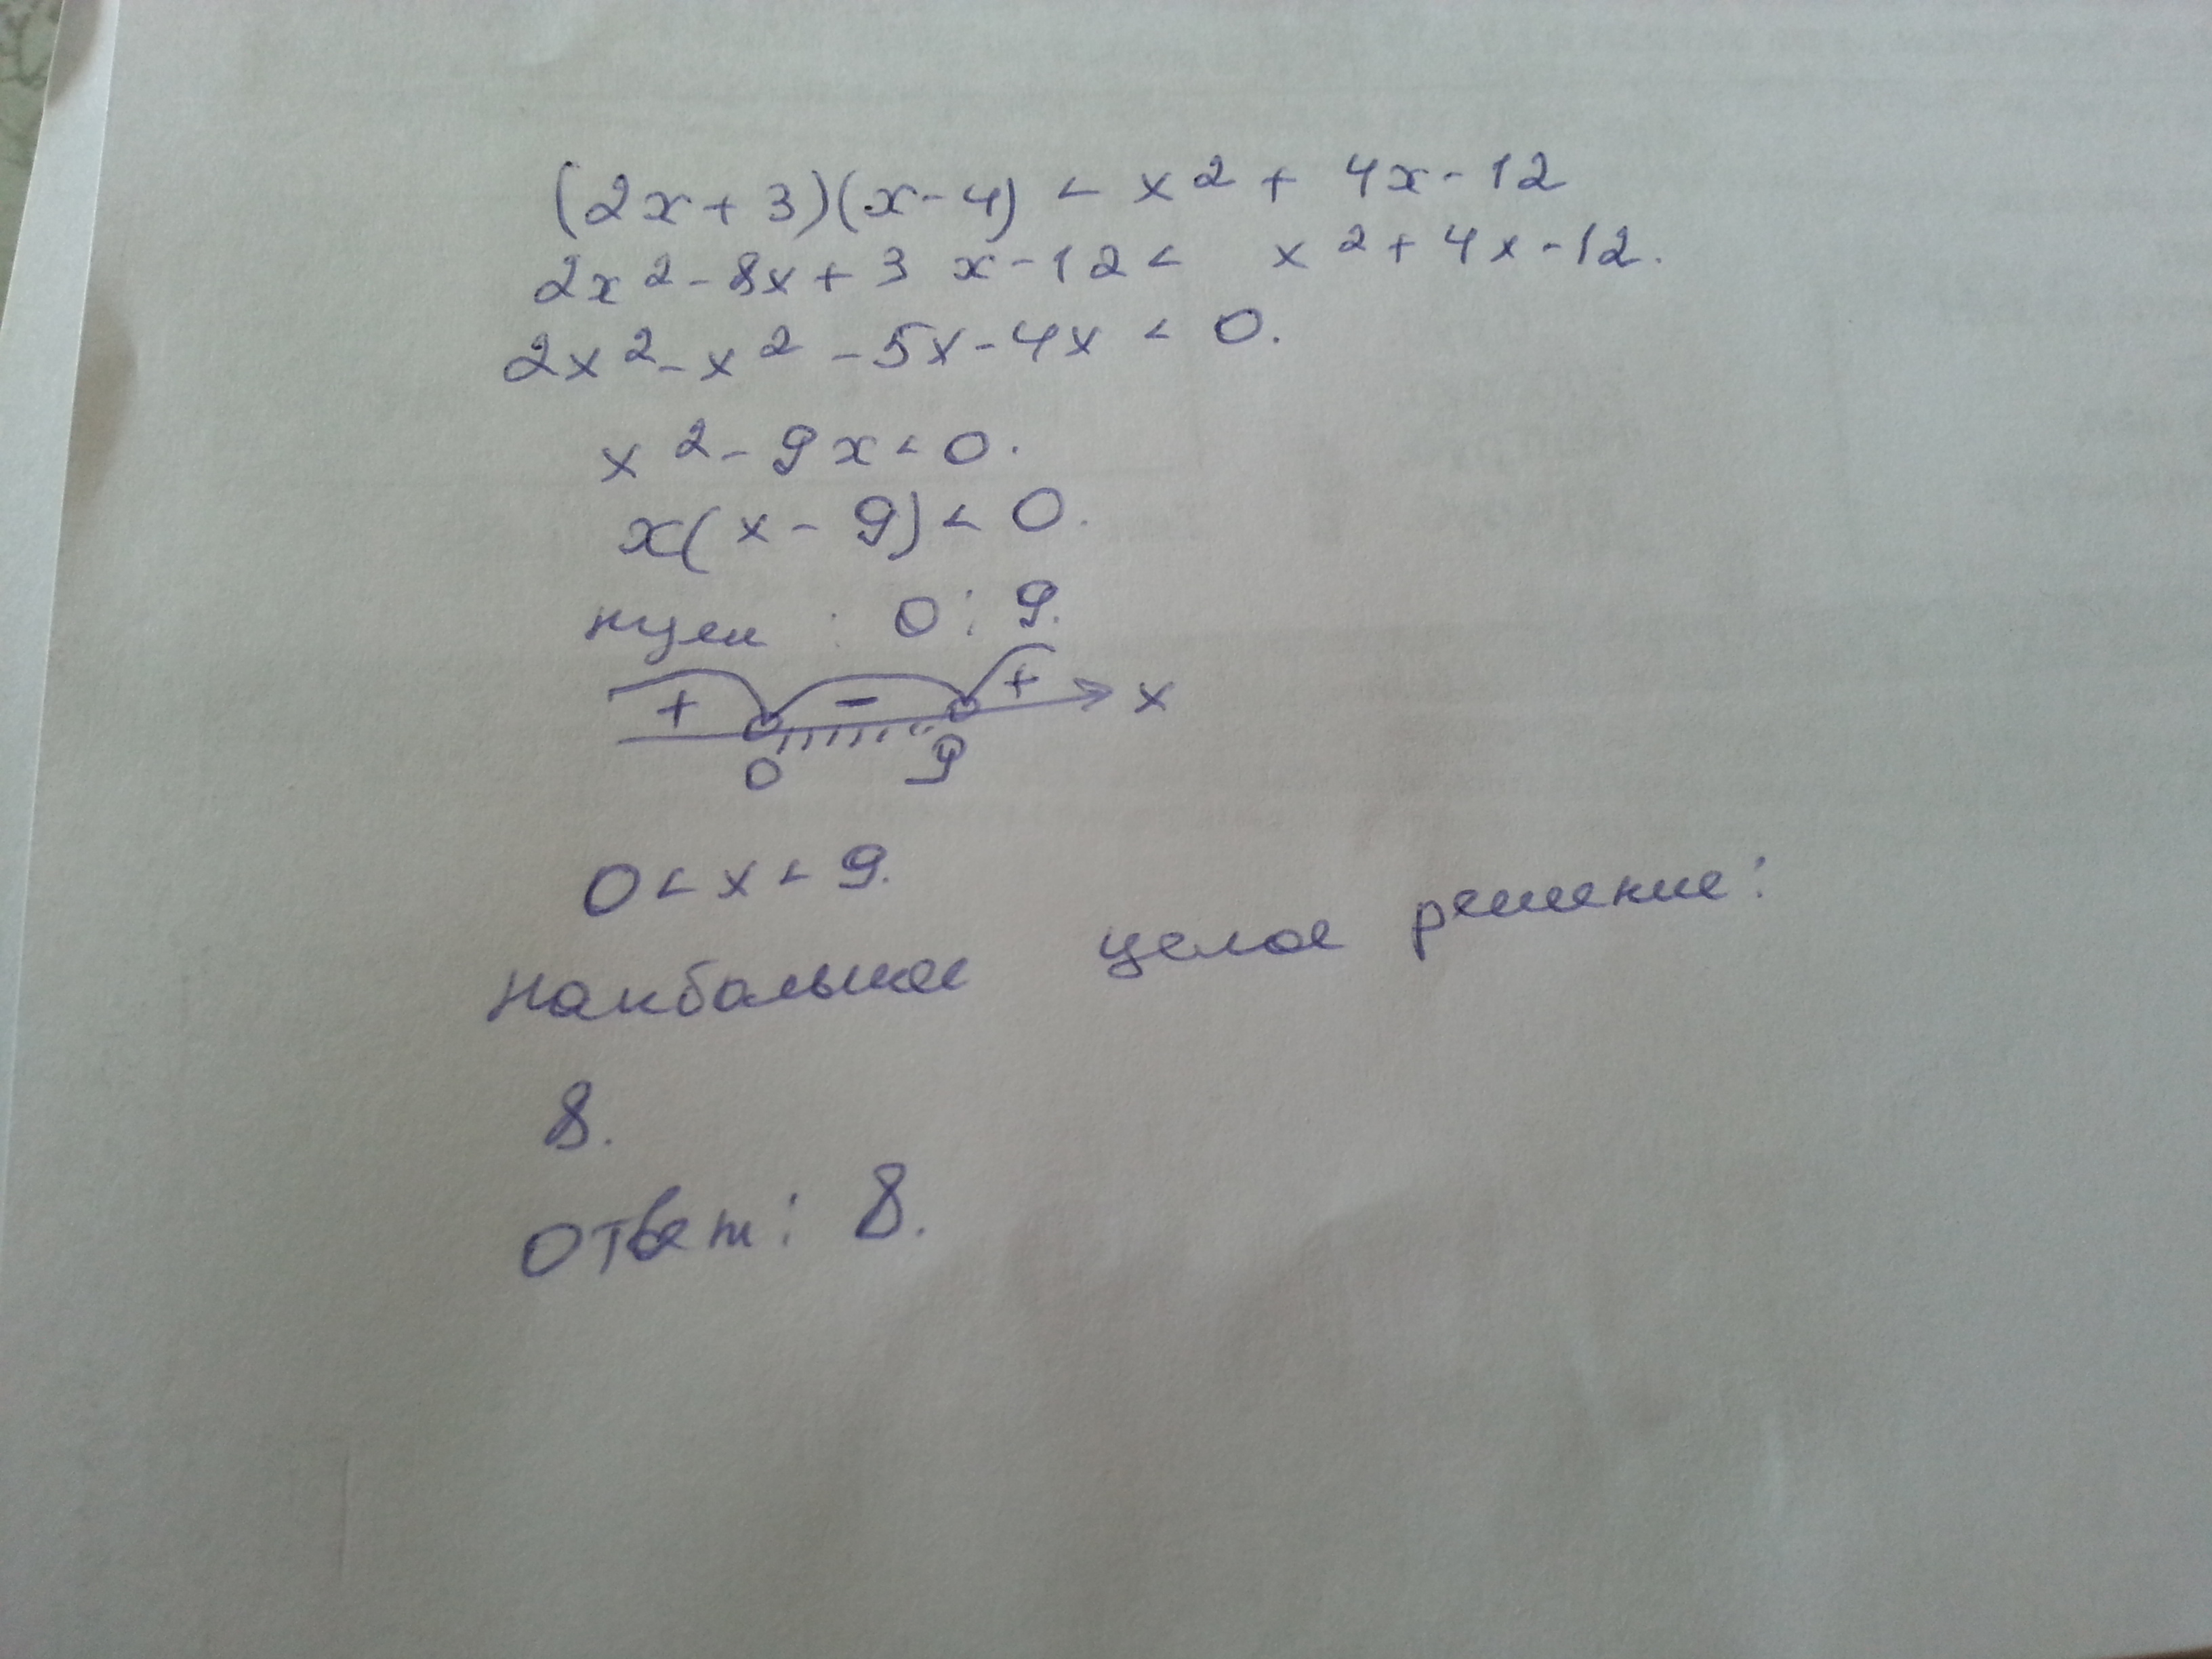 (2x+3)(x-4) < x²+ 4x-12
2x²-8x+3 x-12 < x²+4x-12.
2x²-x² -5x-4x < 0.
x²-9x<0.
x(x-9)<0.
нули : 0; 9.
+ - + x
0 9
0<x<9.
Наибольшее целое решение:
8.
Ответ: 8.